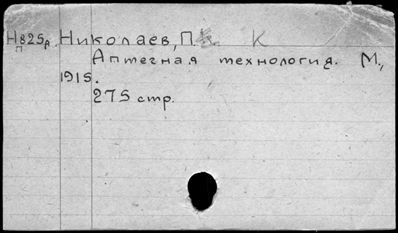 Н825а Николаев, П. К
п
Аптечная технология. М.,
1915.
275 стр.